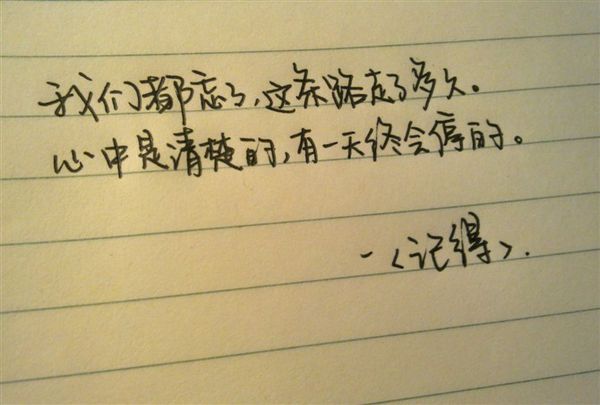 我们都忘了，这条路走了多久。
心中是清楚的，有一天终会停的。
-<记得>.